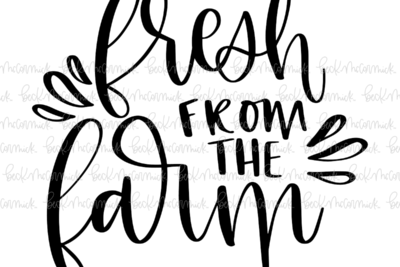 fresh
FROM
THE
farm